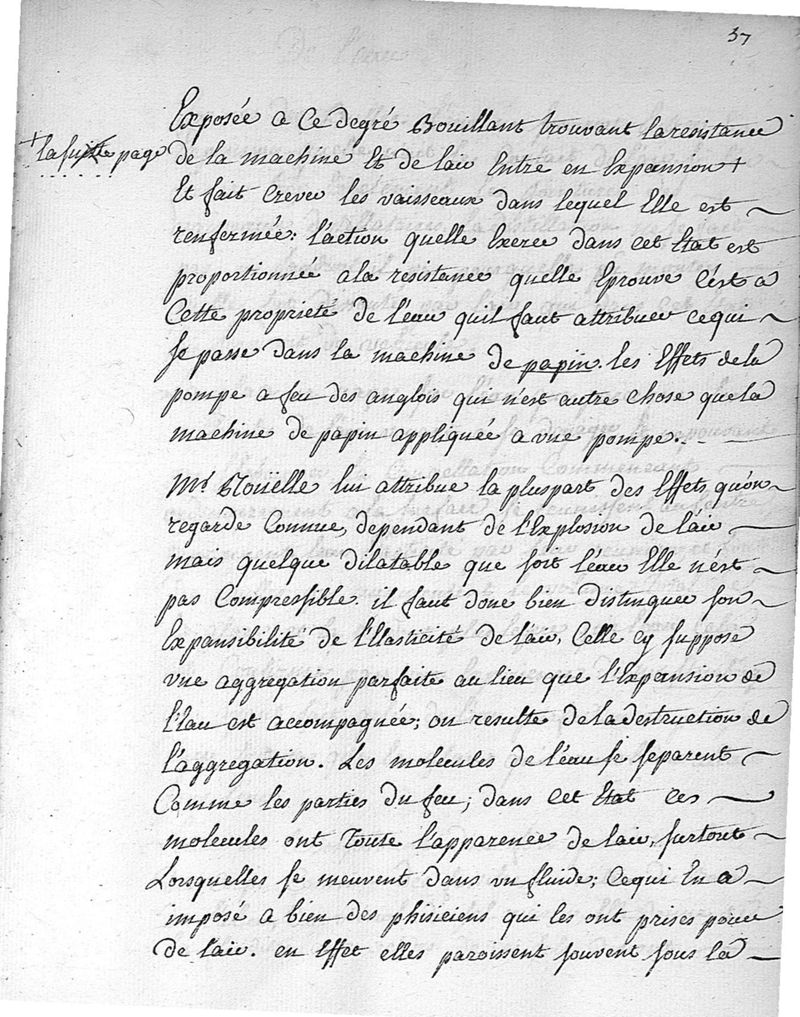 37
Exposée a Ce degré Bouillant trouvant la resistance
+ la suitte page
de la machine Et de l'air Entre en Expansion +
Et fait Crever les vaisseaux dans lequel Elle est
renfermée: l'action quelle Exerce dans cet Etat est
proportionnée a la resistance quelle Eprouve C'est a
Cette proprieté de l'eau quil faut attribuer ce qui
se passe dans la machine de papin. les Effets de la
pompe a feu des anglois qui n'est autre chose que la
machine de papin appliquée a vne pompe.
Mr. Roüelle lui attribue la pluspart des Effets qu'on
regarde Comme, dependant de l'Explosion de l'air
mais quelque dilatable que soit l'eau Elle n'est
pas Compressible. il faut donc bien distinguer son
Expansibilité de l'Elasticité de l'air, Celle cy suppose
vne aggregation parfaite au lieu que l'Expansion de
l'Eau est accompagnée; ou resulte de la destruction de
l'aggregation. Les molecules de l'eau se separent
Comme les parties du feu; dans Cet Etat Ces
molecules ont Toute l'apparence de l'air, surtout
Lorsquelles se meuvent dans vn fluide; Ce qui En a
imposé a bien des phisiciens qui les ont prises pour
de l'air. en Effet elles paroissent souvent sous la